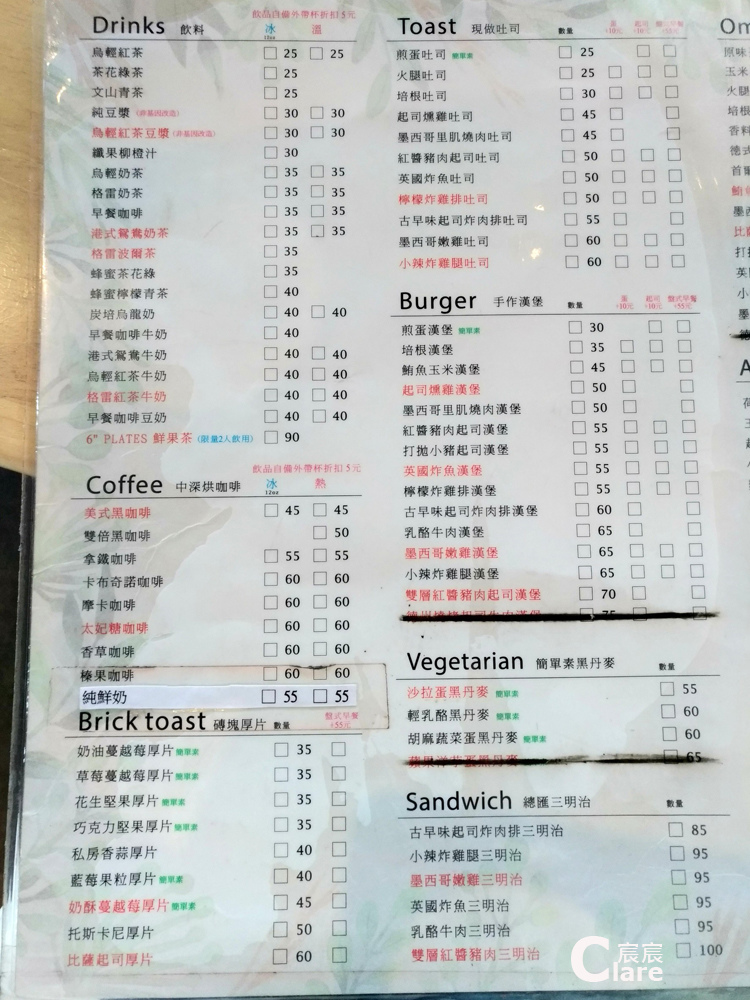 Drinks 飲料
飲品自備外帶杯折扣5元
冰 12oz 溫
烏輕紅茶 25 25
茶花綠茶 25
文山青茶 25
純豆漿(非基因改造) 30 30
烏輕紅茶豆漿(非基因改造) 30 30
纖果柳橙汁 30
烏輕奶茶 35 35
格雷奶茶 35 35
早餐咖啡 35 35
港式鴛鴦奶茶 35 35
格雷波爾茶 35
蜂蜜茶花綠 35
蜂蜜檸檬青茶 40
炭培烏龍奶 40 40
早餐咖啡牛奶 40
港式鴛鴦牛奶 40 40
烏輕紅茶牛奶 40 40
格雷紅茶牛奶 40 40
早餐咖啡豆奶 40 40
6" PLATES 鮮果茶(限量2人飲用) 90
Coffee 中深烘咖啡
飲品自備外帶杯折扣5元
冰 12oz 熱
美式黑咖啡 45 45
雙倍黑咖啡 50
拿鐵咖啡 55 55
卡布奇諾咖啡 60 60
摩卡咖啡 60 60
太妃糖咖啡 60 60
香草咖啡 60 60
榛果咖啡 60 60
純鮮奶 55 55
Brick toast 磚塊厚片 數量 盤式早餐+55元
奶油蔓越莓厚片 簡單素 35
草莓蔓越莓厚片 簡單素 35
花生堅果厚片 簡單素 35
巧克力堅果厚片 簡單素 35
私房香蒜厚片 40
藍莓果粒厚片 簡單素 40
奶酥蔓越莓厚片 簡單素 45
托斯卡尼厚片 50
比薩起司厚片 60
Toast 現做吐司 數量 蛋+10元 起司+10元 盤式早餐+55元
煎蛋吐司 簡單素 25
火腿吐司 25
培根吐司 30
起司燻雞吐司 45
墨西哥里肌燒肉吐司 45
紅醬豬肉起司吐司 50
英國炸魚吐司 50
檸檬炸雞排吐司 50
古早味起司炸肉排吐司 55
墨西哥嫩雞吐司 60
小辣炸雞腿吐司 60
Burger 手作漢堡 數量 蛋+10元 起司+10元 盤式早餐+55元
煎蛋漢堡 簡單素 30
培根漢堡 35
鮪魚玉米漢堡 45
起司燻雞漢堡 50
墨西哥里肌燒肉漢堡 50
紅醬豬肉起司漢堡 55
打拋小豬起司漢堡 55
英國炸魚漢堡 55
檸檬炸雞排漢堡 55
古早味起司炸肉排漢堡 60
乳酪牛肉漢堡 65
墨西哥嫩雞漢堡 65
小辣炸雞腿漢堡 65
雙層紅醬豬肉起司漢堡 70
75
Vegetarian 簡單素黑丹麥 數量
沙拉蛋黑丹麥 簡單素 55
輕乳酪黑丹麥 簡單素 60
胡麻蔬菜蛋黑丹麥 簡單素 60
65
Sandwich 總匯三明治 數量
古早味起司炸肉排三明治 85
小辣炸雞腿三明治 95
墨西哥嫩雞三明治 95
英國炸魚三明治 95
乳酪牛肉三明治 95
雙層紅醬豬肉三明治 100
Om
原味
玉米
火腿
培根
香料
德式
首爾
鮪
墨西
比薩
打拋
英
小
墨
A
宸宸
Clare